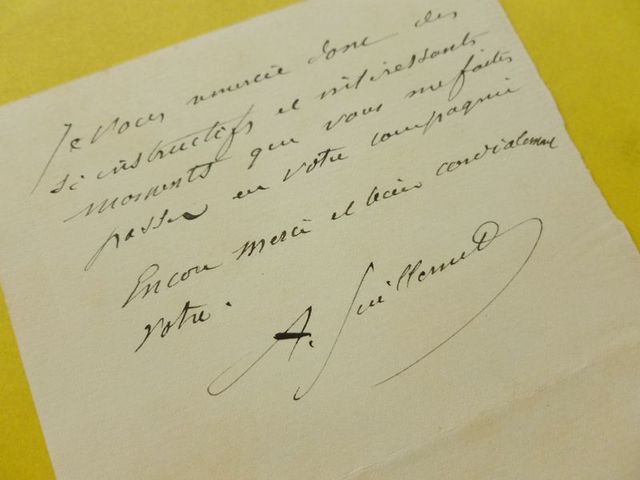 Je vous remercie donc des
si instructifs et intéressants
moments que vous me faites
passer en votre compagnie
Encore merci et bien cordialement
Votre.
A. Guillemet